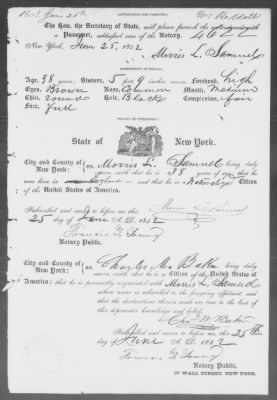 Recd June 28th
APPLICATION FOR PASSPORT.
The Hon. the Secretary of State, will please furnish the undersigned with
a Passport, addressed care of the Notary.
New York, June 25, 1852
Morris L. Samuel
Age, 38 years, Stature, 5 feet, 9 inches Forehead, high
Eyes, Brown Nose, Common Mouth, Medium
Chin, round Hair, Black Complexion, fair
Face, full
State of New York.
City and County of New York: ss. Morris L. Samuel being duly
sworn saith that he is 38 years of age, that he
was born in and that he is a Citizen
of the United States of America.
Subscribed and sworn to before me this
25 day of June A.D. 1852
Morris L. Samuel
Francis G. Young
Notary Public.
City and County of New York: ss. Charles M. Baker being duly
sworn, saith that he is a Citizen of the United States of
America; that he is personally acquainted with Morris L. Samuel
who name is subscribed to the foregoing affidavit, and
that the declarations therein made are true to the best of this
deponent's knowledge and belief.
Chas M Baker
Subscribed and sworn to before me, this 25th
day of June A.D. 1852
Francis G. Young
Notary Public,
WALL STREET, NEW YORK.